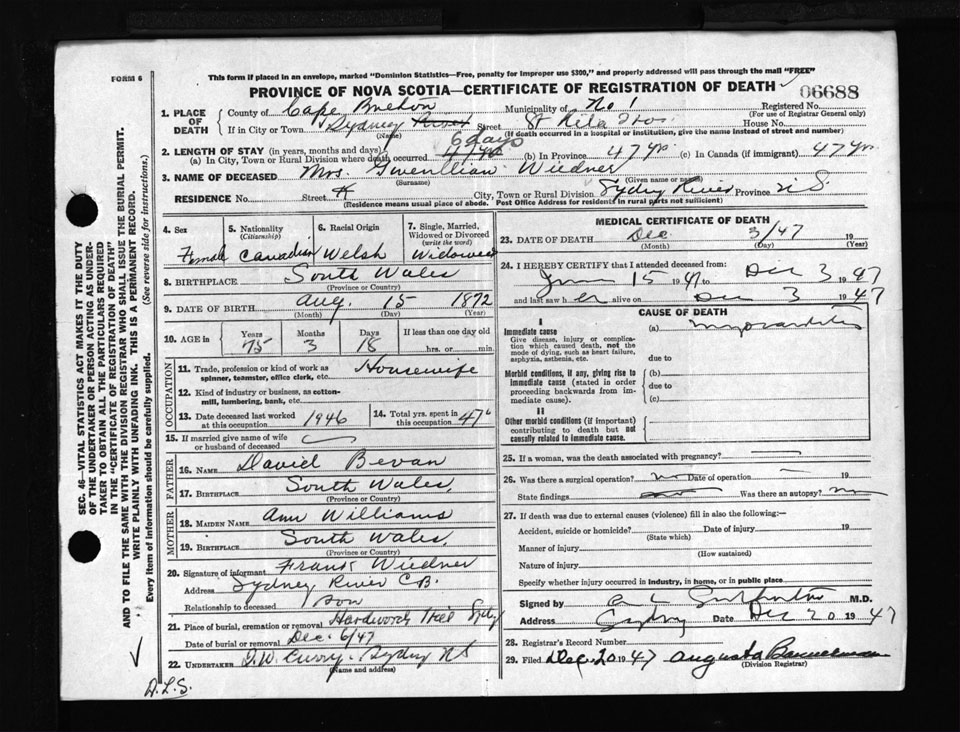 FORM 6
This form if placed in an envelope, marked "Dominion Statistics—Free, penalty for improper use $300," and properly addressed will pass through the mail "FREE"
PROVINCE OF NOVA SCOTIA—CERTIFICATE OF REGISTRATION OF DEATH
06688
1. PLACE OF DEATH
County of Cape Breton Municipality of No 1 Registered No.
(For use of Registrar General only)
If in City or Town Sydney River Street St Rita Hos. House No.
(Name) (If death occurred in a hospital or institution, give the name instead of street and number)
2. LENGTH OF STAY (in years, months and days) 6 days
(a) In City, Town or Rural Division where death occurred 47 yrs (b) In Province 47 yr. (c) In Canada (if immigrant) 47 yr
3. NAME OF DECEASED Mrs. Gwenllian Wiedner
(Surname) (Given name or names)
RESIDENCE No. Street City, Town or Rural Division Sydney River Province N.S.
(Residence means usual place of abode. Post Office Address for residents in rural parts not sufficient)
4. Sex 5. Nationality (Citizenship) 6. Racial Origin 7. Single, Married, Widowed or Divorced (write the word)
Female Canadian Welsh Widowed
8. BIRTHPLACE South Wales
(Province or Country)
9. DATE OF BIRTH Aug. 15 1872
(Month) (Day) (Year)
10. AGE in Years Months Days If less than one day old
75 3 18 hrs. or min.
OCCUPATION
11. Trade, profession or kind of work as spinner, teamster, office clerk, etc. Housewife
12. Kind of industry or business, as cotton-mill, lumbering, bank, etc.
13. Date deceased last worked at this occupation 1946 14. Total yrs. spent in this occupation 47
15. If married give name of wife or husband of deceased
FATHER
16. NAME David Bevan
17. BIRTHPLACE South Wales,
(Province or Country)
MOTHER
18. MAIDEN NAME Ann Williams
19. BIRTHPLACE South Wales,
(Province or Country)
20. Signature of informant Frank Wiedner
Address Sydney River C.B.
Relationship to deceased son
21. Place of burial, cremation or removal Hardwood Hill Sydney
Date of burial or removal Dec. 6/47
22. UNDERTAKER Curry. Sydney NS
(Name and address)
MEDICAL CERTIFICATE OF DEATH
23. DATE OF DEATH Dec 3/47 19
(Month) (Day) (Year)
24. I HEREBY CERTIFY that I attended deceased from:
June 15 1947 to Dec 3 1947
and last saw her alive on Dec 3 1947
CAUSE OF DEATH
I
Immediate cause
Give disease, injury or complication which caused death, not the mode of dying, such as heart failure, asphyxia, asthenia, etc.
(a) myocarditis
due to
Morbid conditions, if any, giving rise to immediate cause (stated in order proceeding backwards from immediate cause).
(b)
due to
(c)
II
Other morbid conditions (if important) contributing to death but not causally related to immediate cause.
25. If a woman, was the death associated with pregnancy?
26. Was there a surgical operation? no Date of operation 19
State findings Was there an autopsy? no
27. If death was due to external causes (violence) fill in also the following:—
Accident, suicide or homicide? Date of injury 19
(State which)
Manner of injury
(How sustained)
Nature of injury
Specify whether injury occurred in industry, in home, or in public place
Signed by M.D.
Address Sydney Date Dec 20 1947
28. Registrar's Record Number
29. Filed Dec. 20 1947 Augusta Bannerman
(Division Registrar)
SEC. 46—VITAL STATISTICS ACT MAKES IT THE DUTY
OF THE UNDERTAKER OR PERSON ACTING AS UNDER-
TAKER TO OBTAIN ALL THE PARTICULARS REQUIRED
IN THE "CERTIFICATE OF REGISTRATION OF DEATH"
AND TO FILE THE SAME WITH THE DIVISION REGISTRAR WHO SHALL ISSUE THE BURIAL PERMIT.
WRITE PLAINLY WITH UNFADING INK. THIS IS A PERMANENT RECORD.
Every item of information should be carefully supplied. (See reverse side for instructions.)
D.L.S.